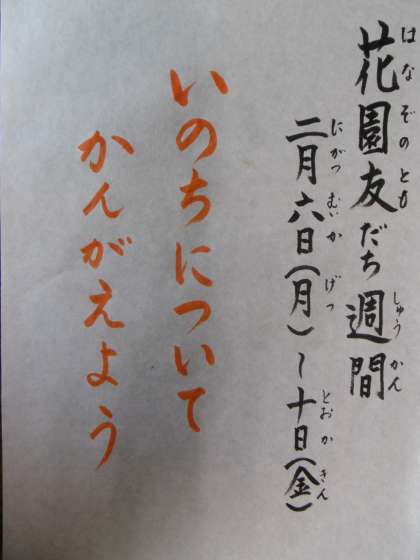 花園友だち週間
はなぞのとも
しゅうかん
二月六日(月)~十日(金)
にがつむいか
げつ
とおか
きん
いのちについて
かんがえよう